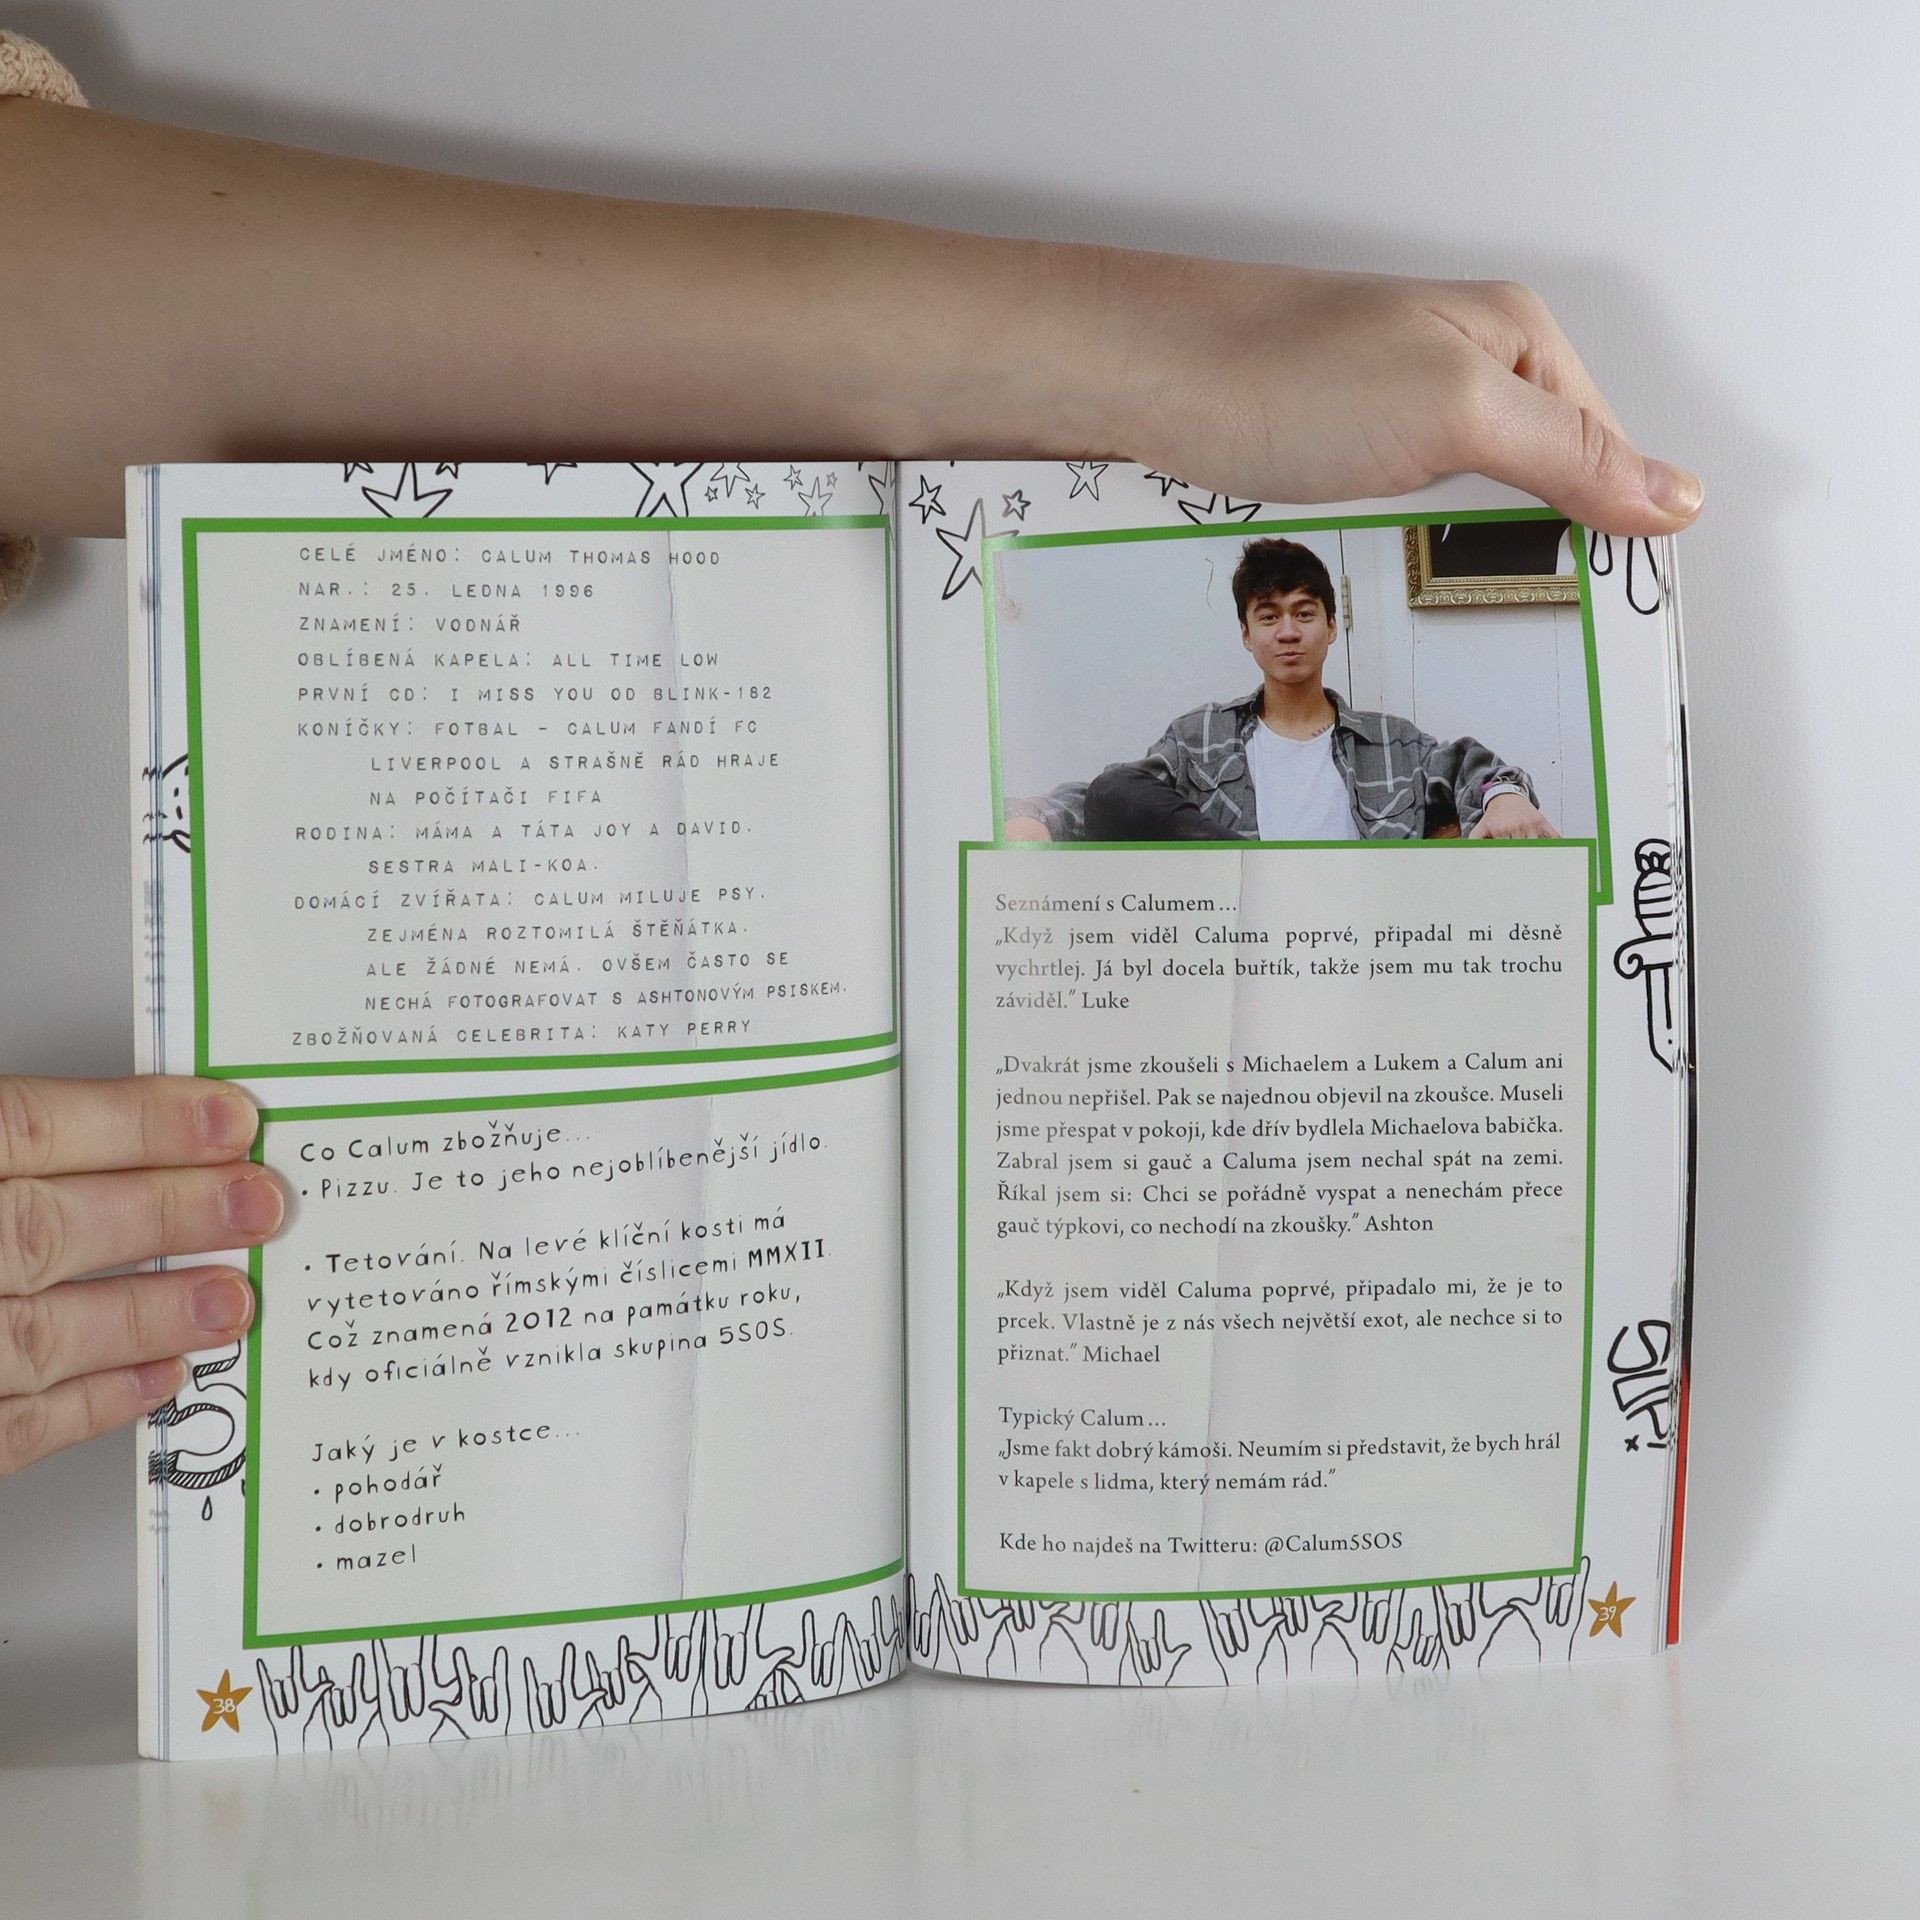 CELÉ JMÉNO: CALUM THOMAS HOOD
NAR.: 25. LEDNA 1996
ZNAMENÍ: VODNÁŘ
OBLÍBENÁ KAPELA: ALL TIME LOW
PRVNÍ CD: I MISS YOU OD BLINK-182
KONÍČKY: FOTBAL – CALUM FANDÍ FC
LIVERPOOL A STRAŠNĚ RÁD HRAJE
NA POČÍTAČI FIFA
RODINA: MÁMA A TÁTA JOY A DAVID.
SESTRA MALI-KOA.
DOMÁCÍ ZVÍŘATA: CALUM MILUJE PSY.
ZEJMÉNA ROZTOMILÁ ŠTĚŇÁTKA.
ALE ŽÁDNÉ NEMÁ. OVŠEM ČASTO SE
NECHÁ FOTOGRAFOVAT S ASHTONOVÝM PSISKEM.
ZBOŽŇOVANÁ CELEBRITA: KATY PERRY
Co Calum zbožňuje...
• Pizzu. Je to jeho nejoblíbenější jídlo.
• Tetování. Na levé klíční kosti má
vytetováno římskými číslicemi MMXII.
Což znamená 2012 na památku roku,
kdy oficiálně vznikla skupina 5SOS.
Jaký je v kostce...
• pohodář
• dobrodruh
• mazel
38
Seznámení s Calumem...
„Když jsem viděl Caluma poprvé, připadal mi děsně
vychrtlej. Já byl docela buřtík, takže jsem mu tak trochu
záviděl.” Luke
„Dvakrát jsme zkoušeli s Michaelem a Lukem a Calum ani
jednou nepřišel. Pak se najednou objevil na zkoušce. Museli
jsme přespat v pokoji, kde dřív bydlela Michaelova babička.
Zabral jsem si gauč a Caluma jsem nechal spát na zemi.
Říkal jsem si: Chci se pořádně vyspat a nenechám přece
gauč týpkovi, co nechodí na zkoušky.” Ashton
„Když jsem viděl Caluma poprvé, připadalo mi, že je to
prcek. Vlastně je z nás všech největší exot, ale nechce si to
přiznat.” Michael
Typický Calum...
„Jsme fakt dobrý kámoši. Neumím si představit, že bych hrál
v kapele s lidma, který nemám rád.”
Kde ho najdeš na Twitteru: @Calum5SOS
39